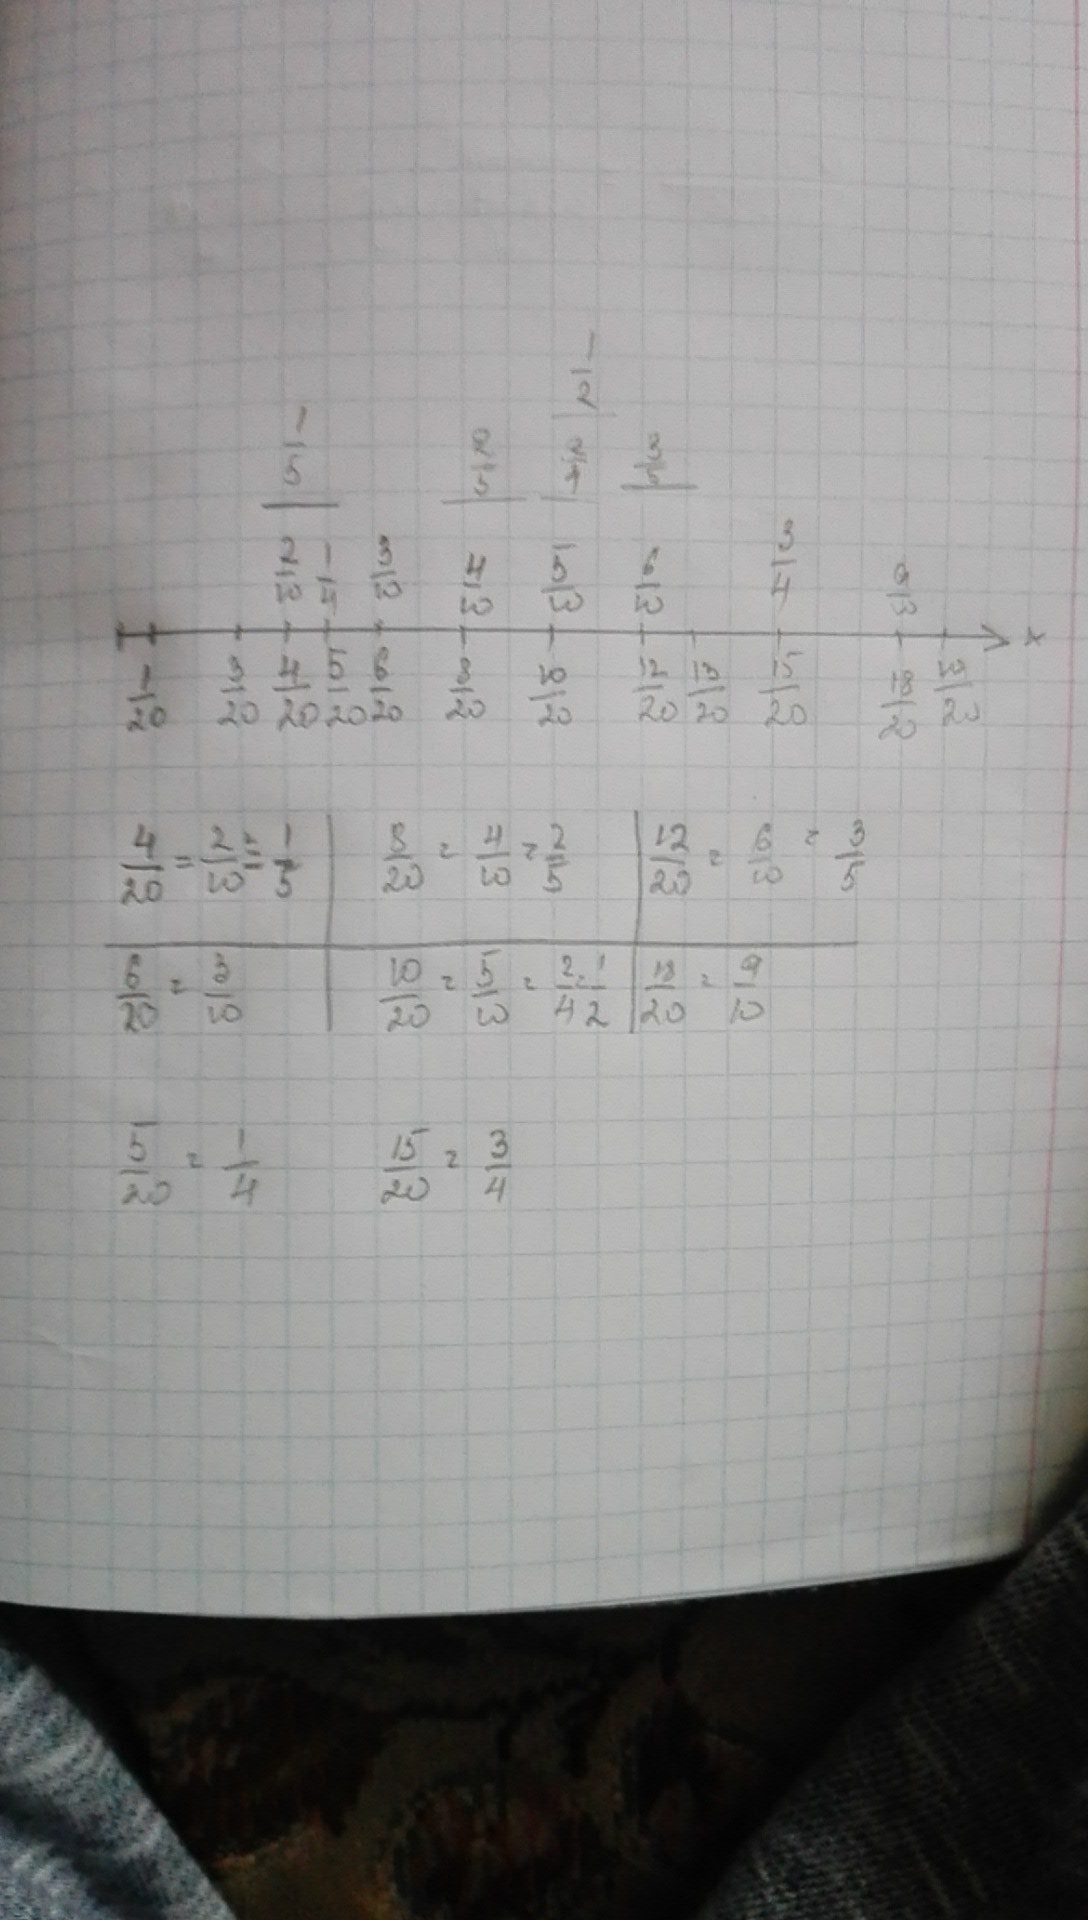 1/2
1/5 2/5 2/4 3/5
2/10 1/4 3/10 4/10 5/10 6/10 3/4 9/10
x
1/20 3/20 4/20 5/20 6/20 8/20 10/20 12/20 13/20 15/20 18/20 19/20
4/20 = 2/10 = 1/5 8/20 = 4/10 = 2/5 12/20 = 6/10 = 3/5
6/20 = 3/10 10/20 = 5/10 = 2/4 = 1/2 18/20 = 9/10
5/20 = 1/4 15/20 = 3/4